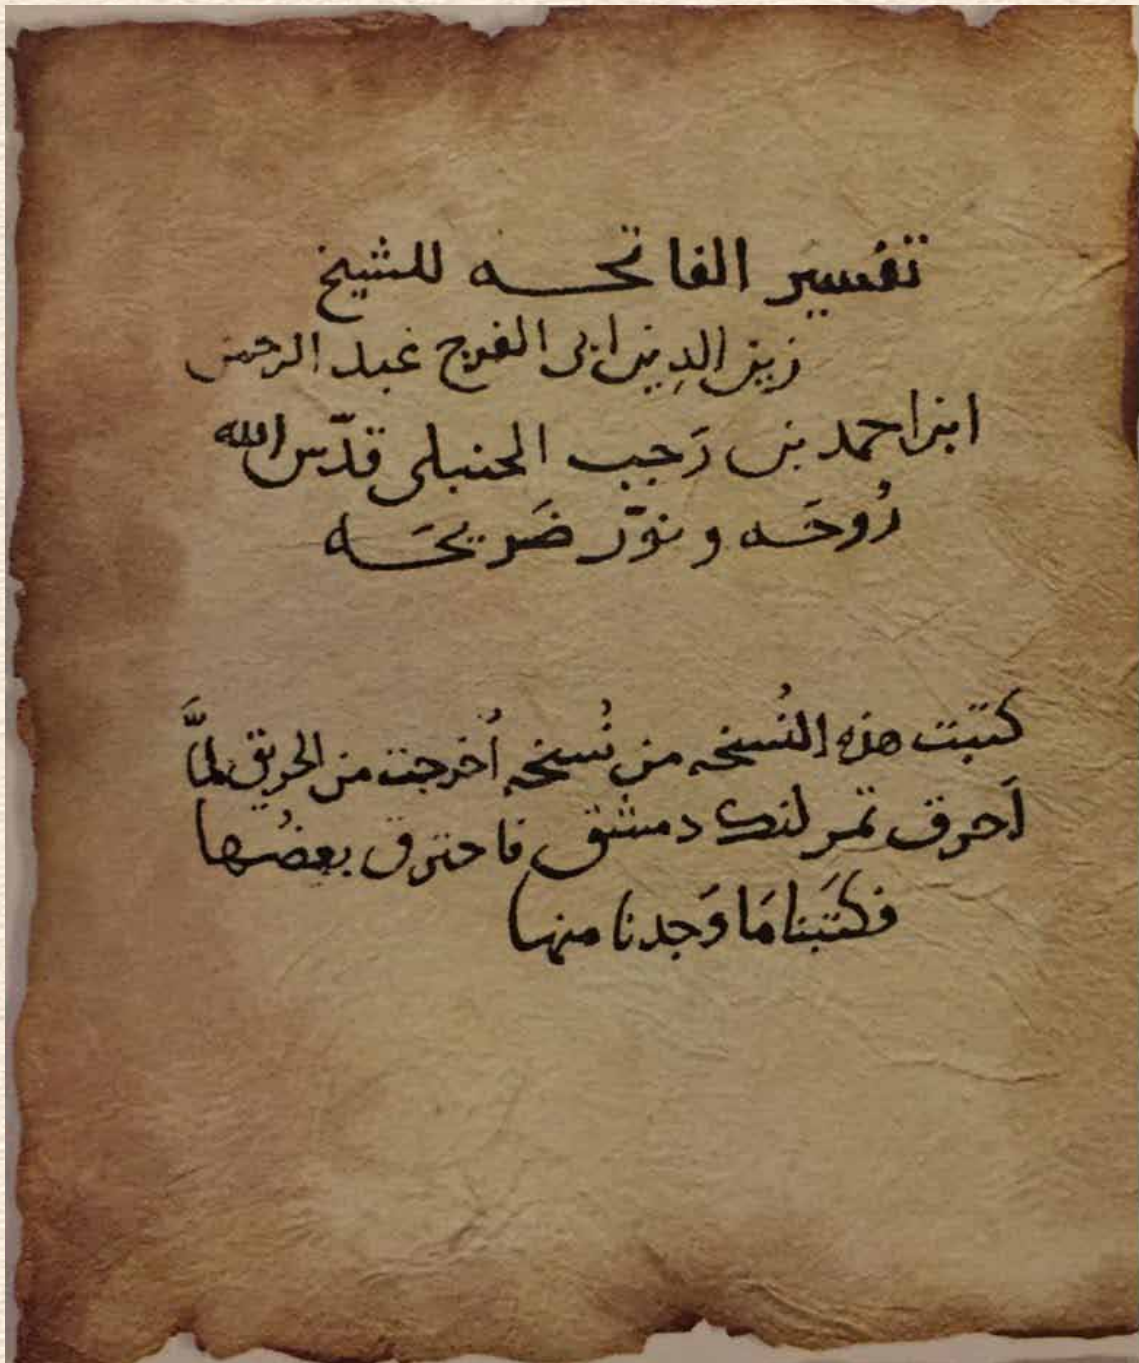 تفسير الفاتحه للشيخ
زين الدين ابى الفرج عبد الرحمن
ابن احمد بن رَجب الحنبلى قدّس الله
رُوحَه و نوّر ضَريحَه
كتبت هذه النُسخه من نُسخهٍ أخرجت من الحريق لمَّا
اَحرق تمر لنك دمشق فاحترق بعضُها
فكتَبنا مَا وَجدنا منها